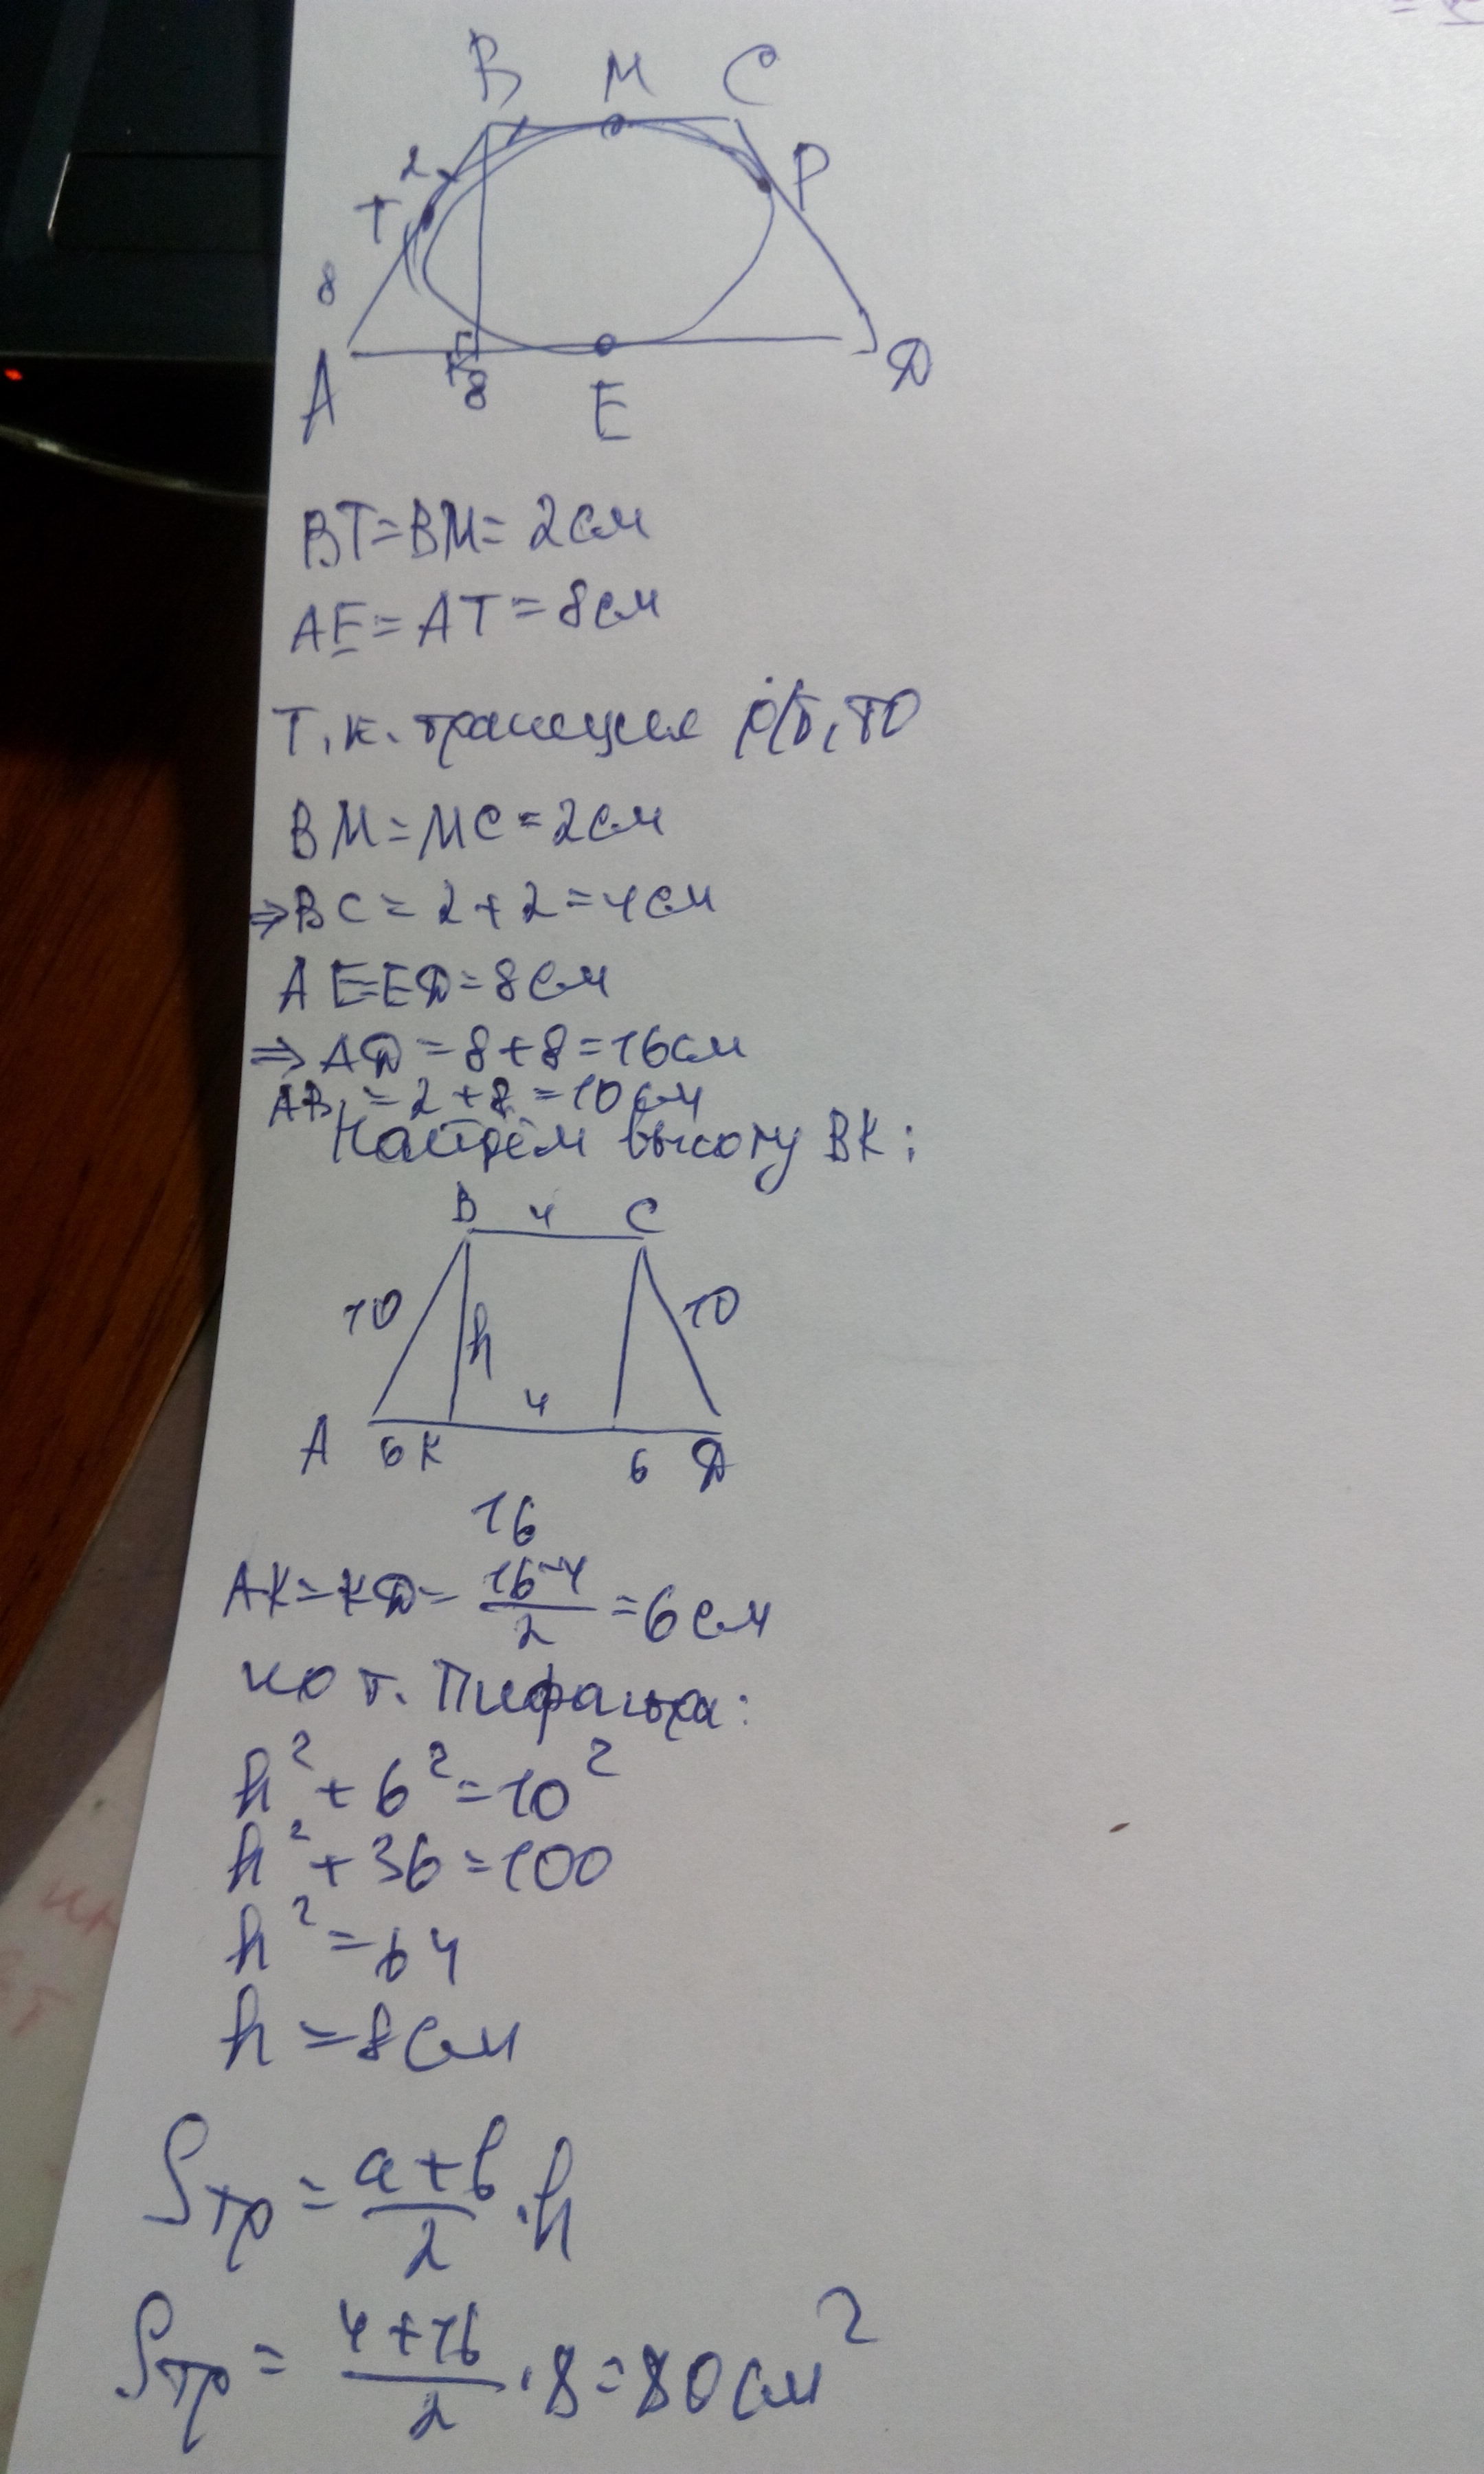 B M C
2
T P
8
A K 8 E D
BT=BM=2см
AE=AT=8см
Т.к. трапеция р/б, то
BM=MC=2см
⇒BC=2+2=4см
AE=ED=8см
⇒AD=8+8=16см
AB=2+8=10см
Найдём высоту BK:
B 4 C
10 h 10
4
A 6 K 6 D
16
AK=KD=\frac{16-4}{2}=6см
по т. Пифагора:
h²+6²=10²
h²+36=100
h²=64
h=8см
Sтр=\frac{a+b}{2}·h
Sтр=\frac{4+16}{2}·8=80см²